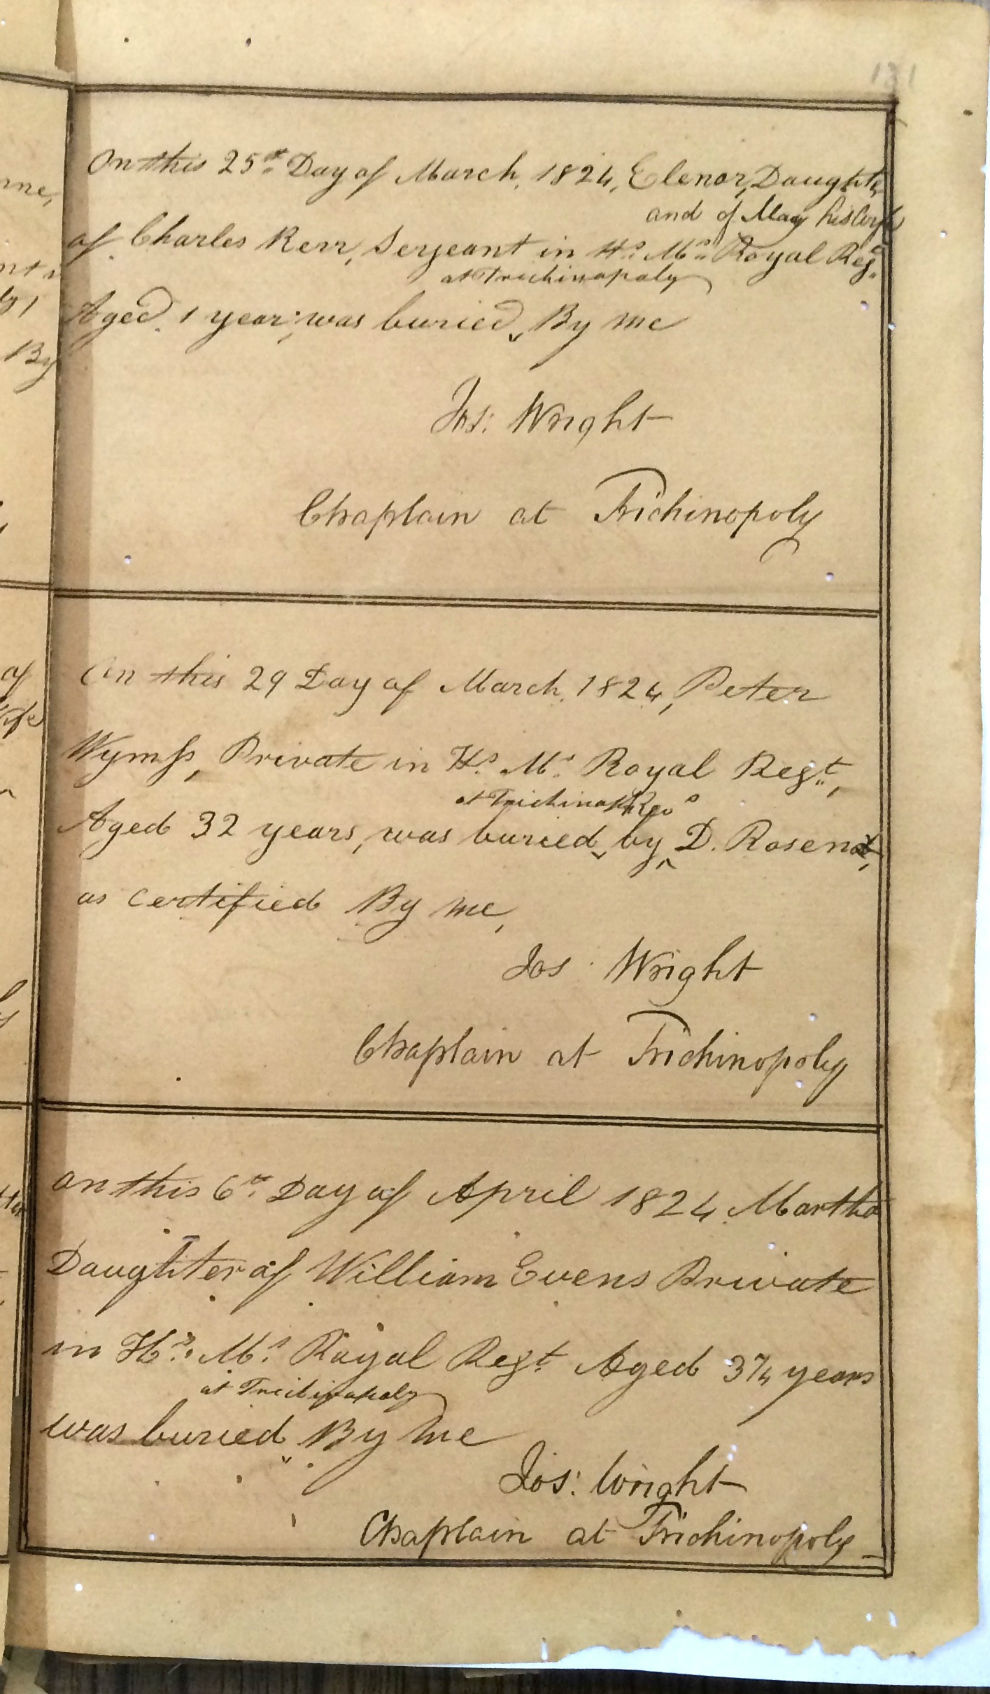 131
On this 25th Day of March, 1824, Elenor, Daughter
and of May his Wife
of Charles Kerr, Serjeant in Hs. Ms. Royal Regt.
at Trichinopoly
Aged 1 year; was buried, By me
Jos: Wright
Chaplain at Trichinopoly
On this 29 Day of March, 1824, Peter
Private in Hs. Ms. Royal Regt.,
at Trichinop Revd
Aged 32 years, was buried, by D. Rosen
as certified By me,
Jos Wright
Chaplain at Trichinopoly
On this 6th Day of April 1824 Martha
Daughter of William Evens Private
in Hs. Ms. Royal Regt. Aged 3¼ years
at Trichinopoly
was buried By me
Jos: Wright
Chaplain at Trichinopoly